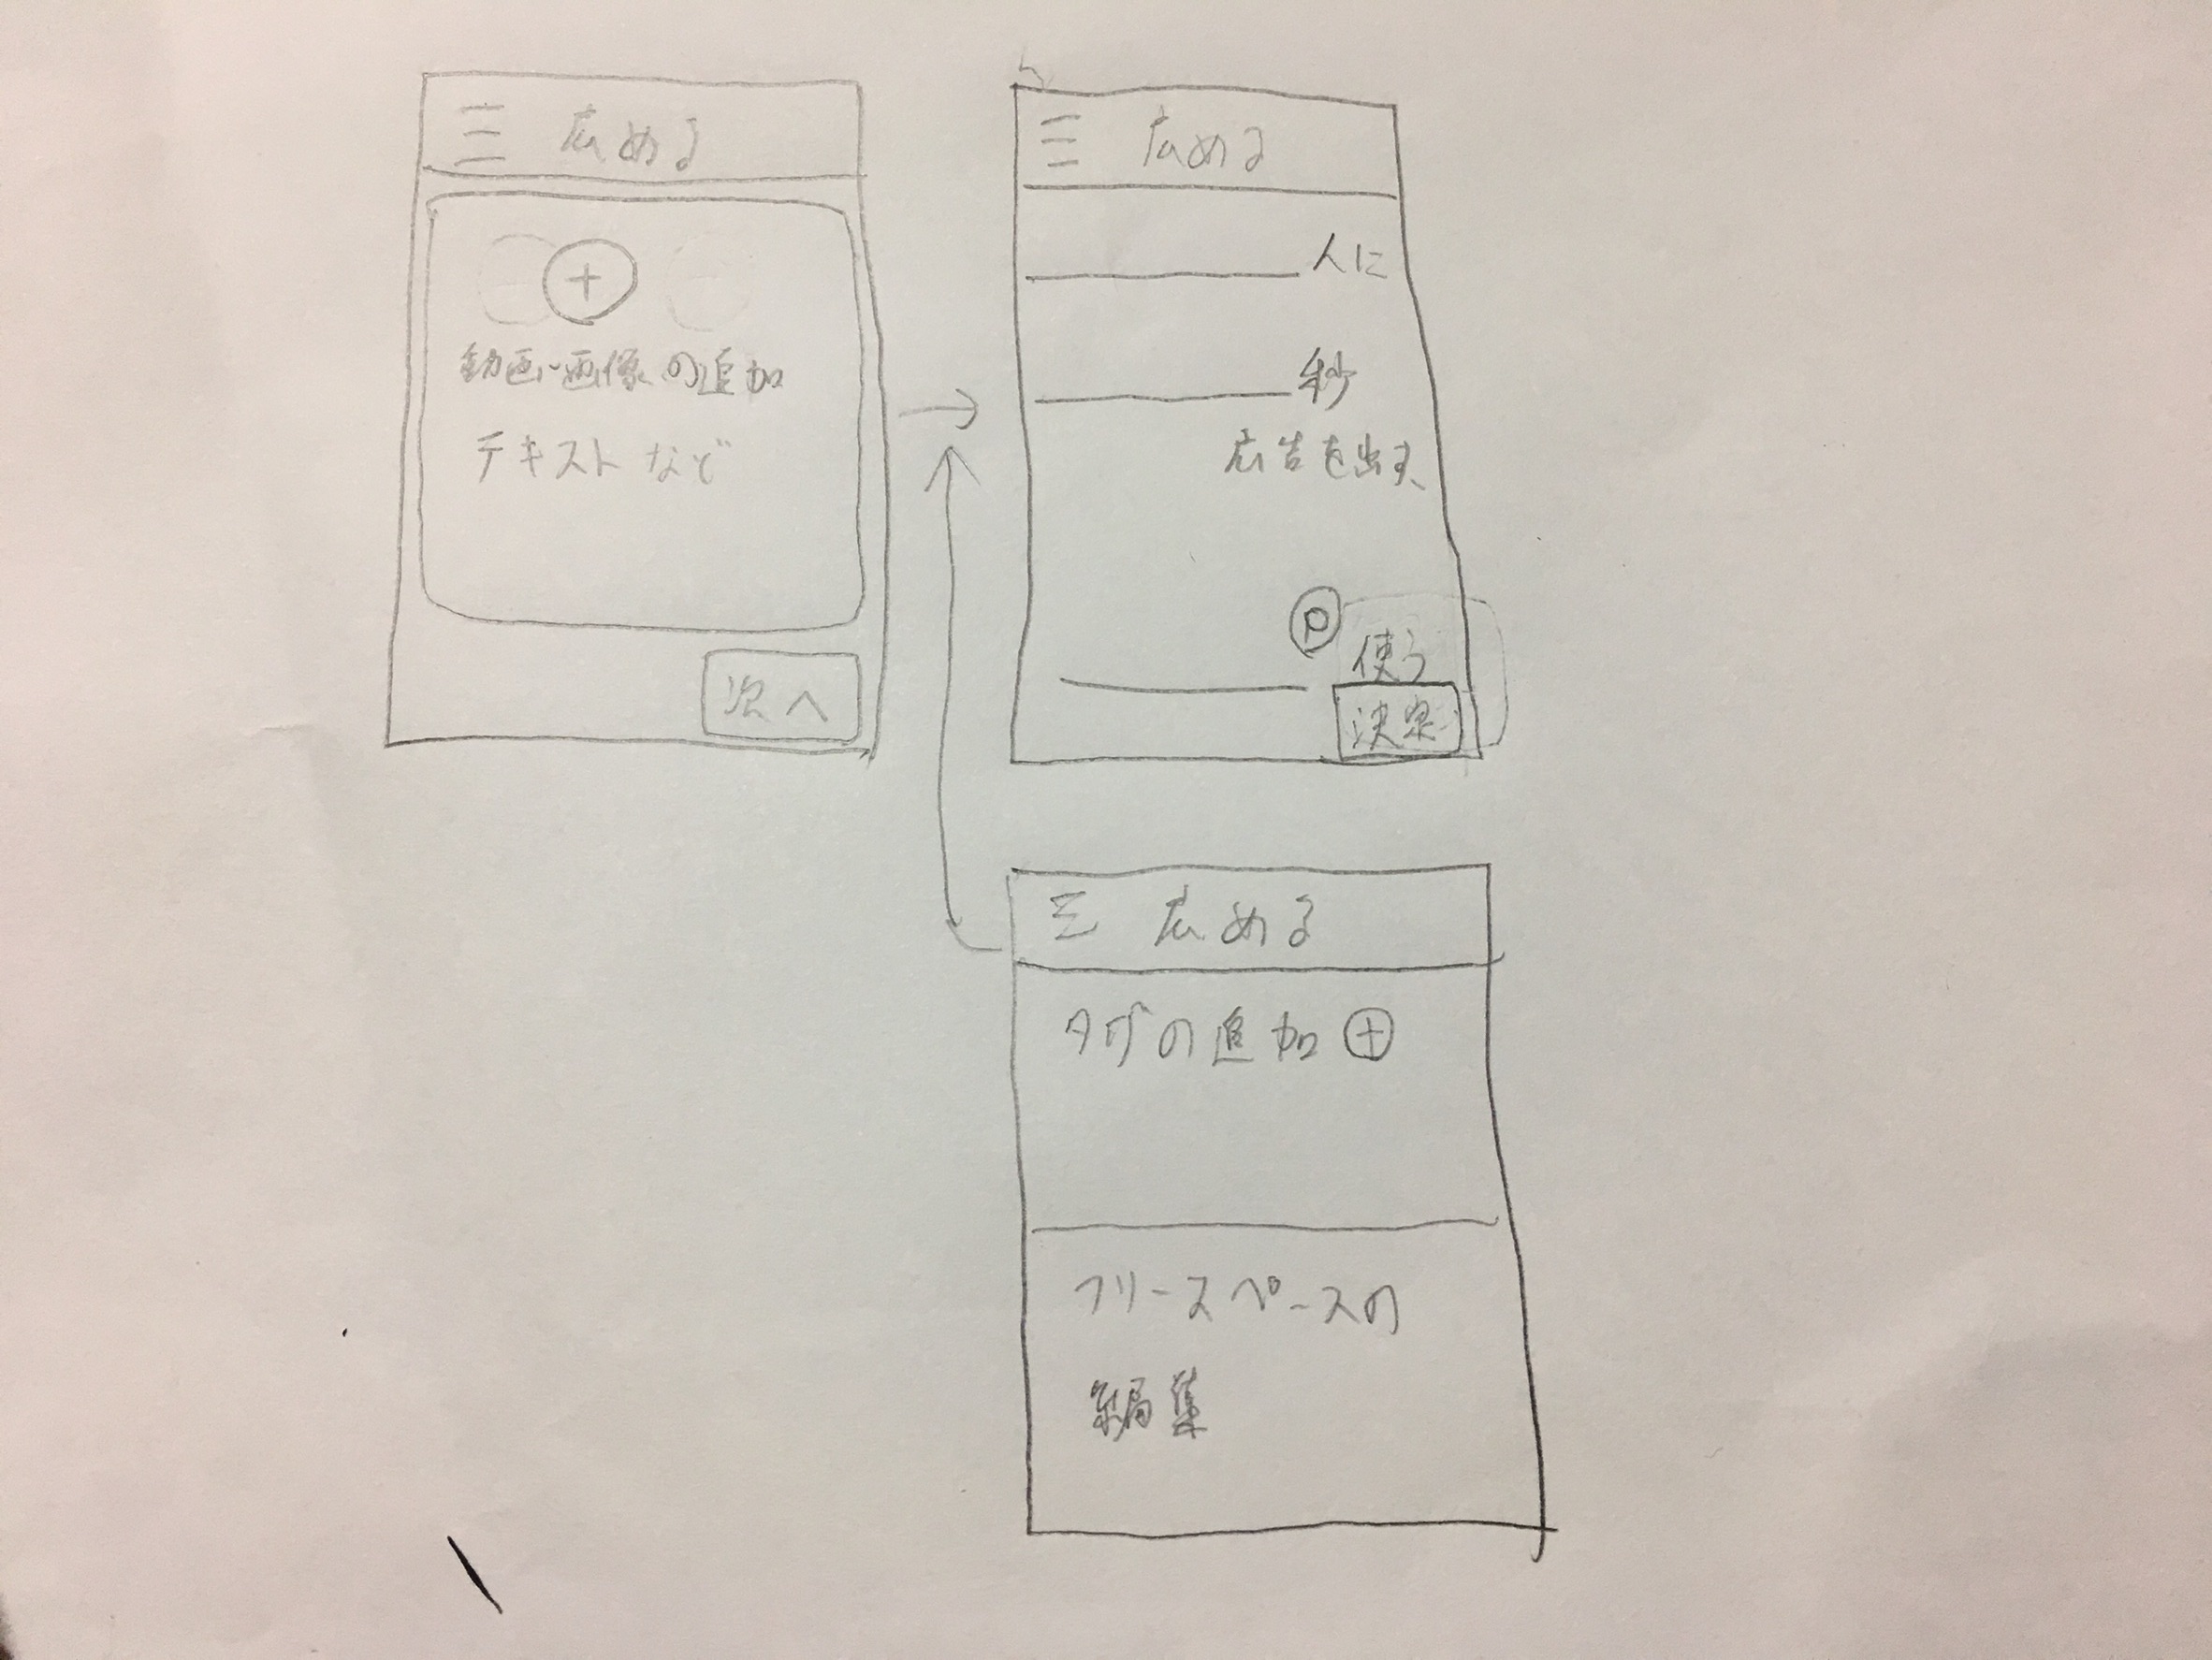 広める
+
動画・画像の追加
テキストなど
次へ
広める
人に
秒
広告を出す
P
使う
決定
広める
タグの追加 +
フリースペースの
編集